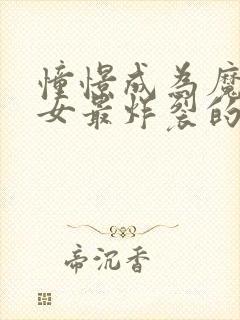 憧憬成为魔
女最炸裂的
帝沉香